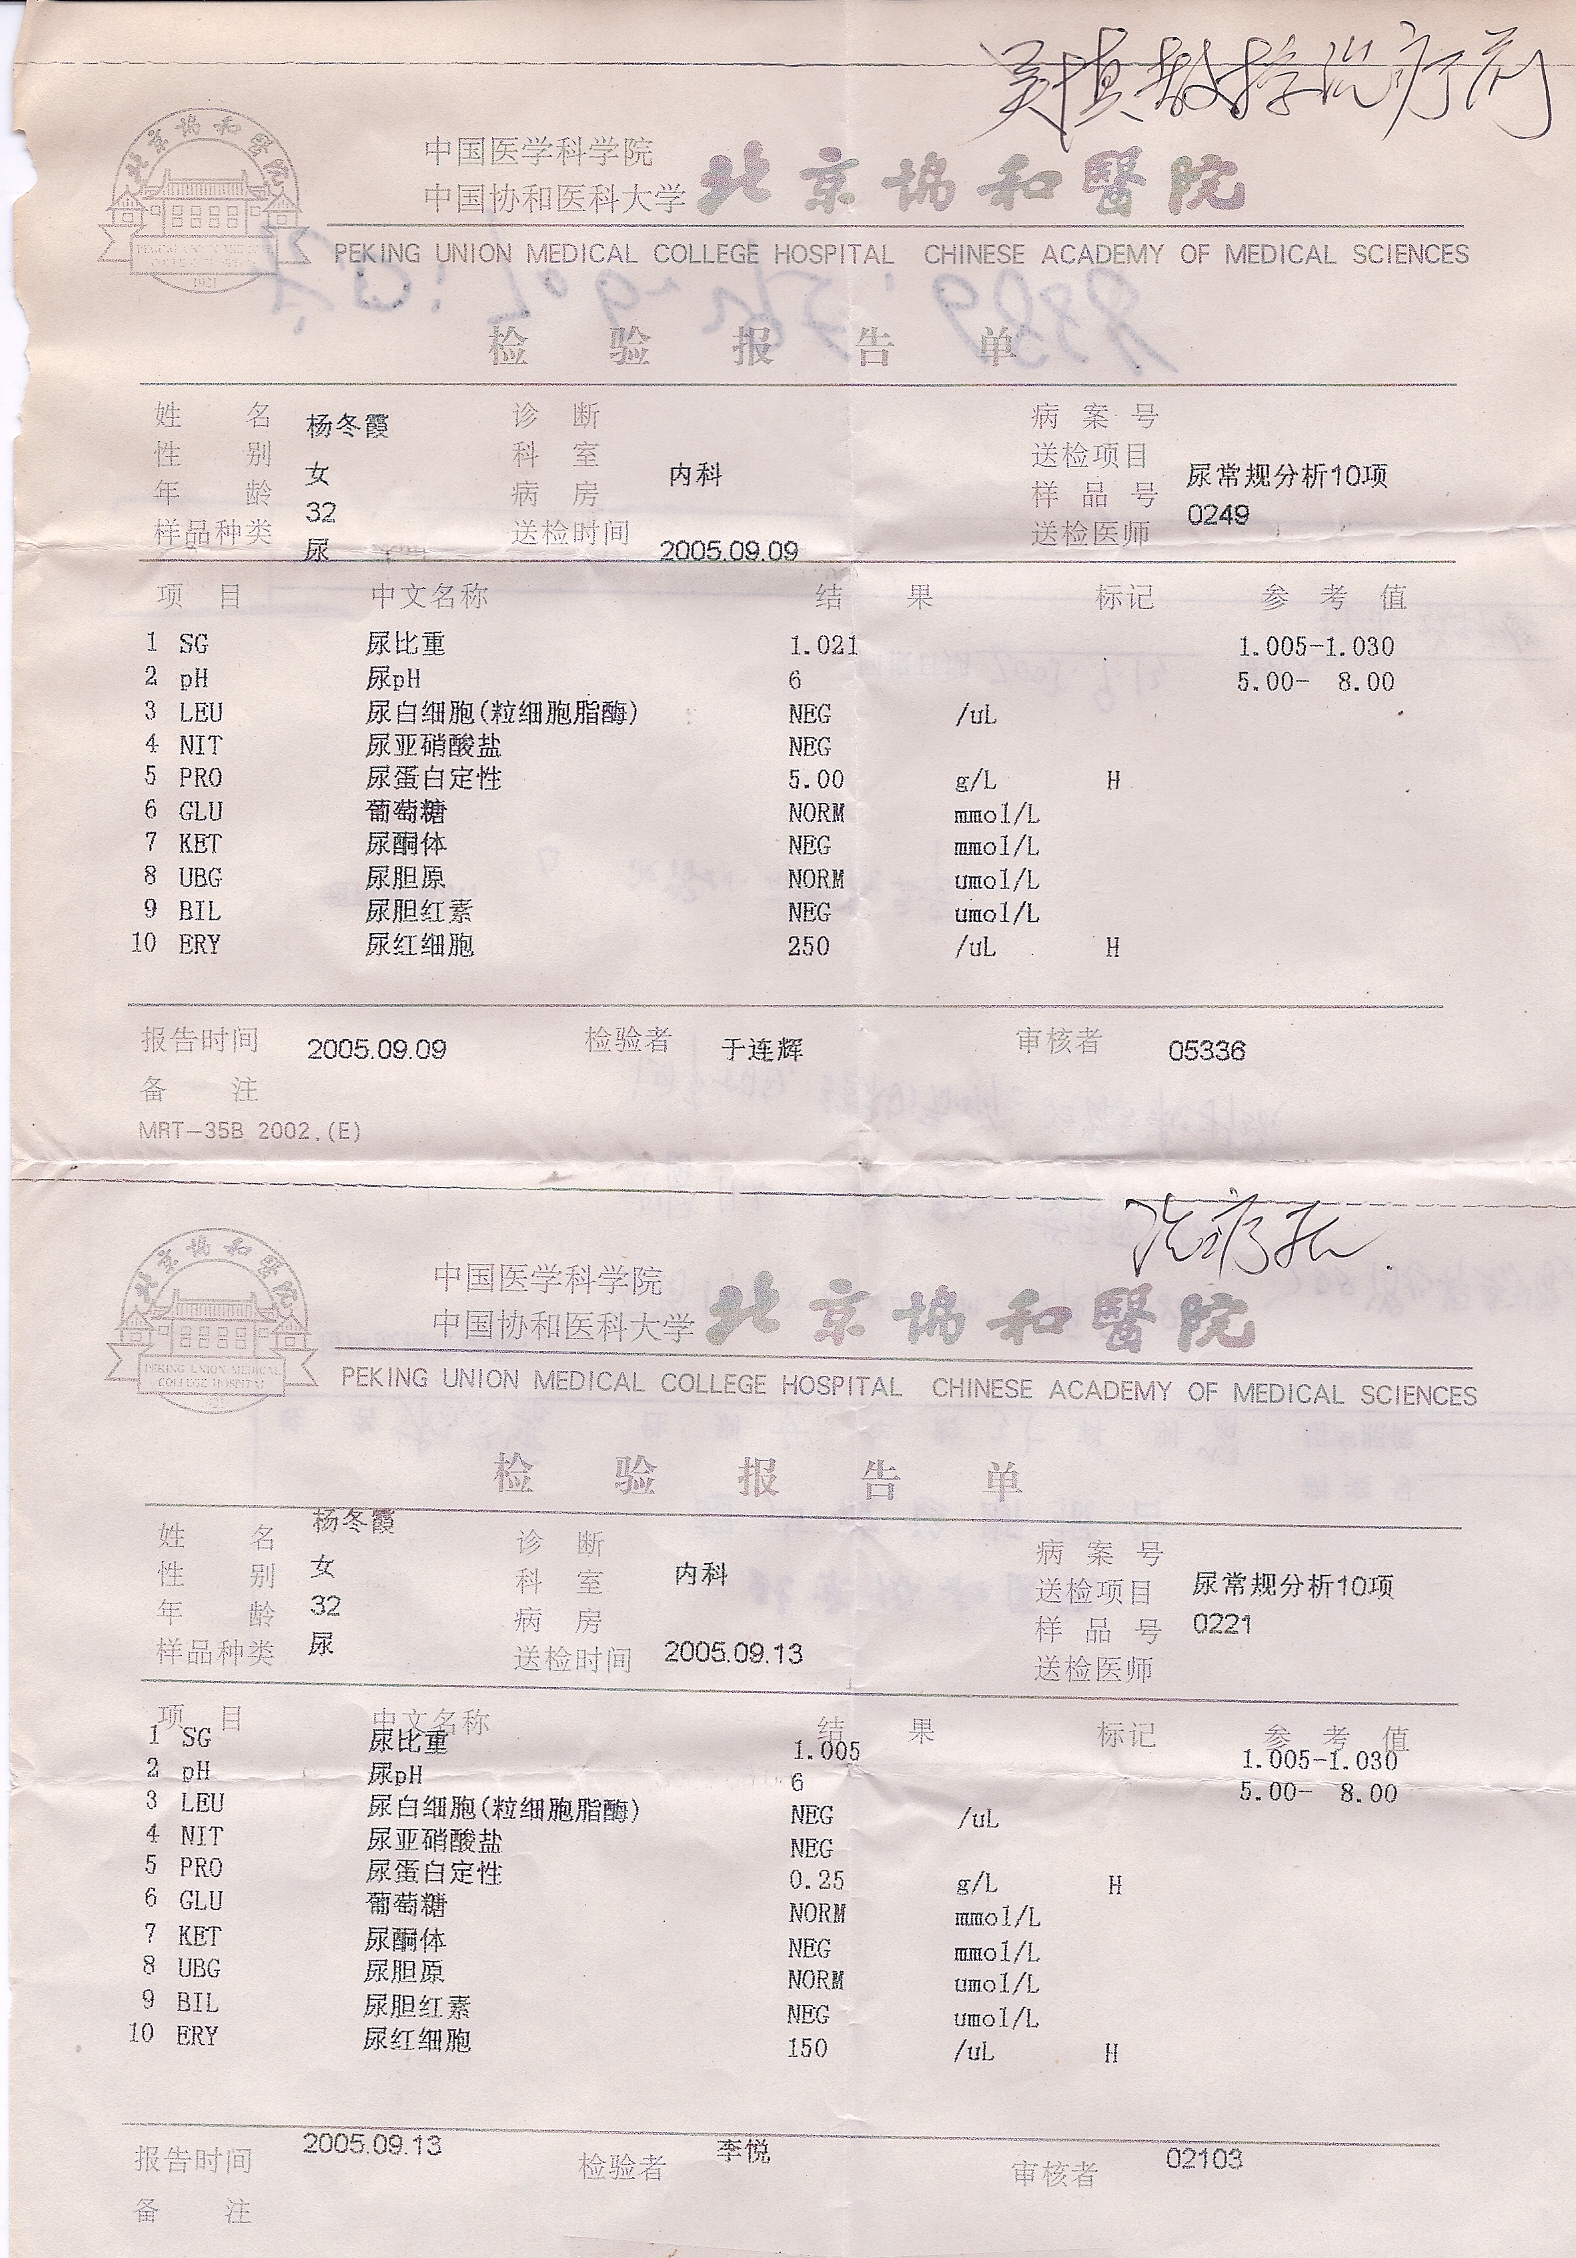 吴植教授治疗前
北京协和醫院
中国医学科学院
中国协和医科大学 北京協和醫院
PEKING UNION MEDICAL COLLEGE HOSPITAL CHINESE ACADEMY OF MEDICAL SCIENCES
1921
检验报告单
姓名 杨冬霞 诊断 病案号
性别 女 科室 内科 送检项目 尿常规分析10项
年龄 32 病房 样品号 0249
样品种类 尿 送检时间 2005.09.09 送检医师
项目 中文名称 结果 标记 参考值
1 SG 尿比重 1.021 1.005-1.030
2 pH 尿pH 6 5.00- 8.00
3 LEU 尿白细胞(粒细胞脂酶) NEG /uL
4 NIT 尿亚硝酸盐 NEG
5 PRO 尿蛋白定性 5.00 g/L H
6 GLU 葡萄糖 NORM mmol/L
7 KET 尿酮体 NEG mmol/L
8 UBG 尿胆原 NORM umol/L
9 BIL 尿胆红素 NEG umol/L
10 ERY 尿红细胞 250 /uL H
报告时间 2005.09.09 检验者 于连辉 审核者 05336
备注
MRT-35B 2002.(E)
治疗后
北京協和醫院
PEKING UNION MEDICAL
COLLEGE HOSPITAL
中国医学科学院
中国协和医科大学 北京協和醫院
PEKING UNION MEDICAL COLLEGE HOSPITAL CHINESE ACADEMY OF MEDICAL SCIENCES
检验报告单
姓名 杨冬霞 诊断 病案号
性别 女 科室 内科 送检项目 尿常规分析10项
年龄 32 病房 样品号 0221
样品种类 尿 送检时间 2005.09.13 送检医师
项目 中文名称 结果 标记 参考值
1 SG 尿比重 1.005 1.005-1.030
2 pH 尿pH 6 5.00- 8.00
3 LEU 尿白细胞(粒细胞脂酶) NEG /uL
4 NIT 尿亚硝酸盐 NEG
5 PRO 尿蛋白定性 0.25 g/L H
6 GLU 葡萄糖 NORM mmol/L
7 KET 尿酮体 NEG mmol/L
8 UBG 尿胆原 NORM umol/L
9 BIL 尿胆红素 NEG umol/L
10 ERY 尿红细胞 150 /uL H
报告时间 2005.09.13 检验者 李悦 审核者 02103
备注